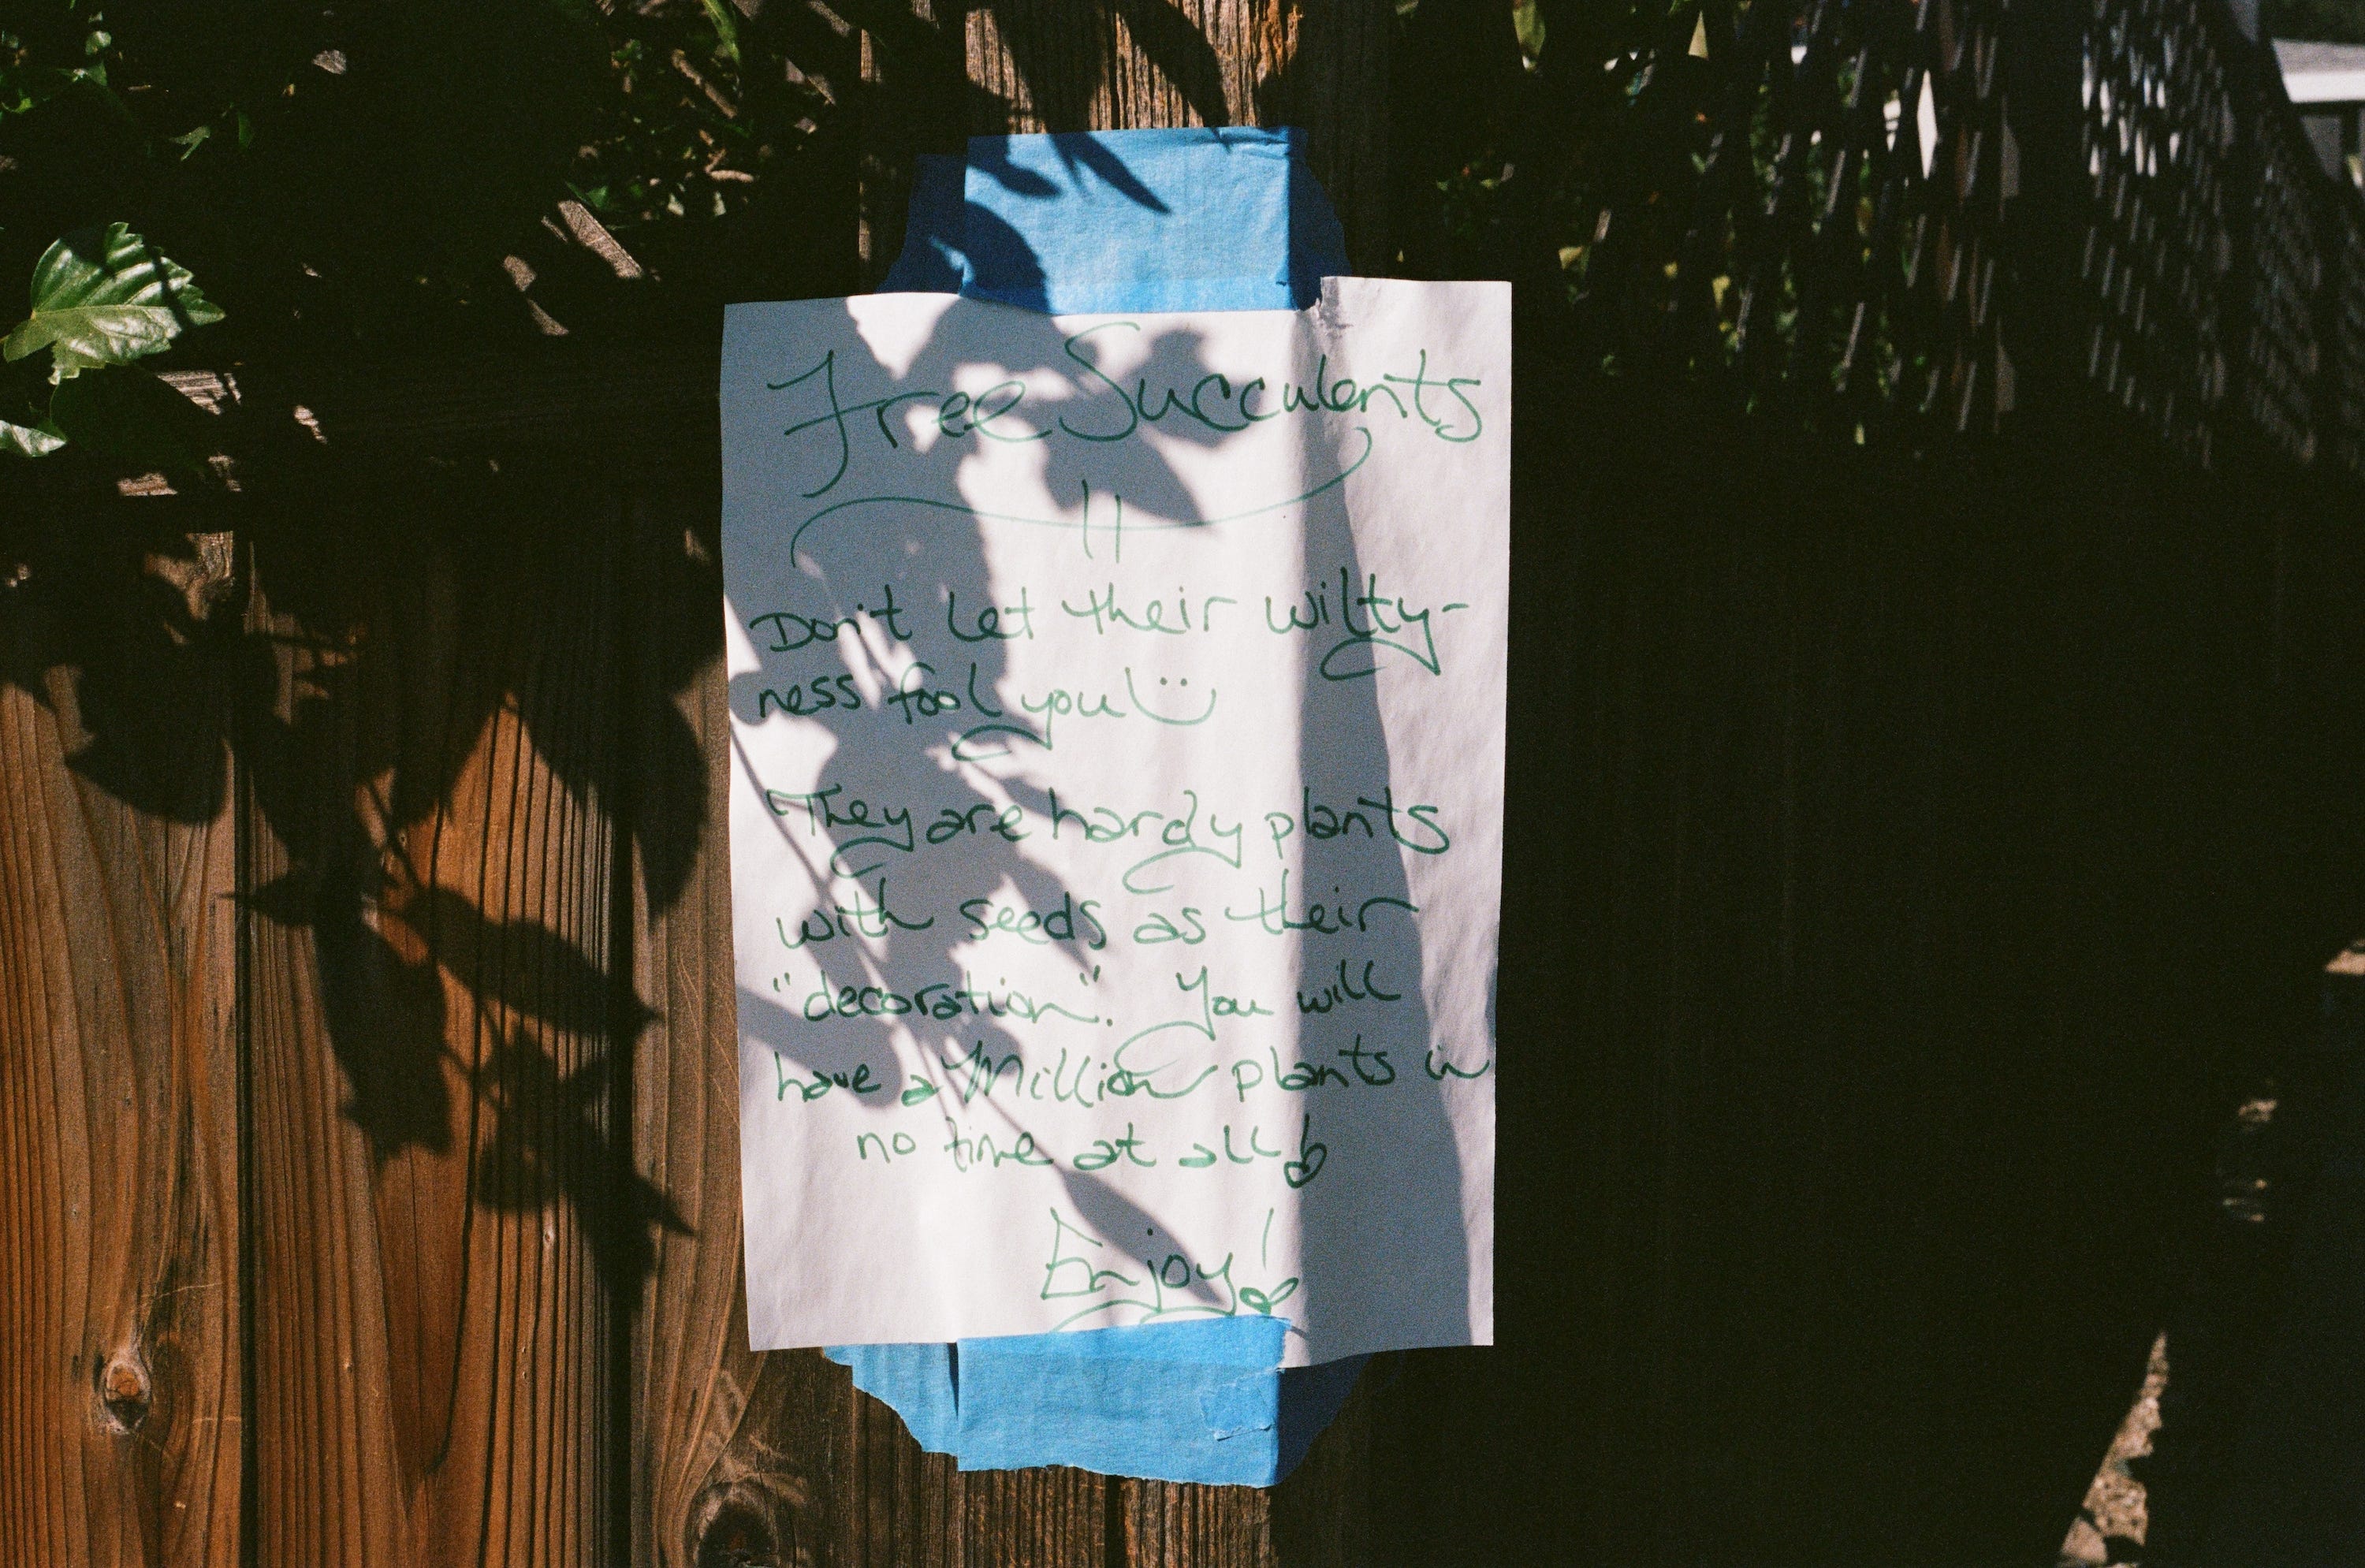 Free Succulents
Don't let their wilty-
ness fool you! :)
They are hardy plants
with seeds as their
"decoration". You will
have a Million plants in
no time at all!
Enjoy!